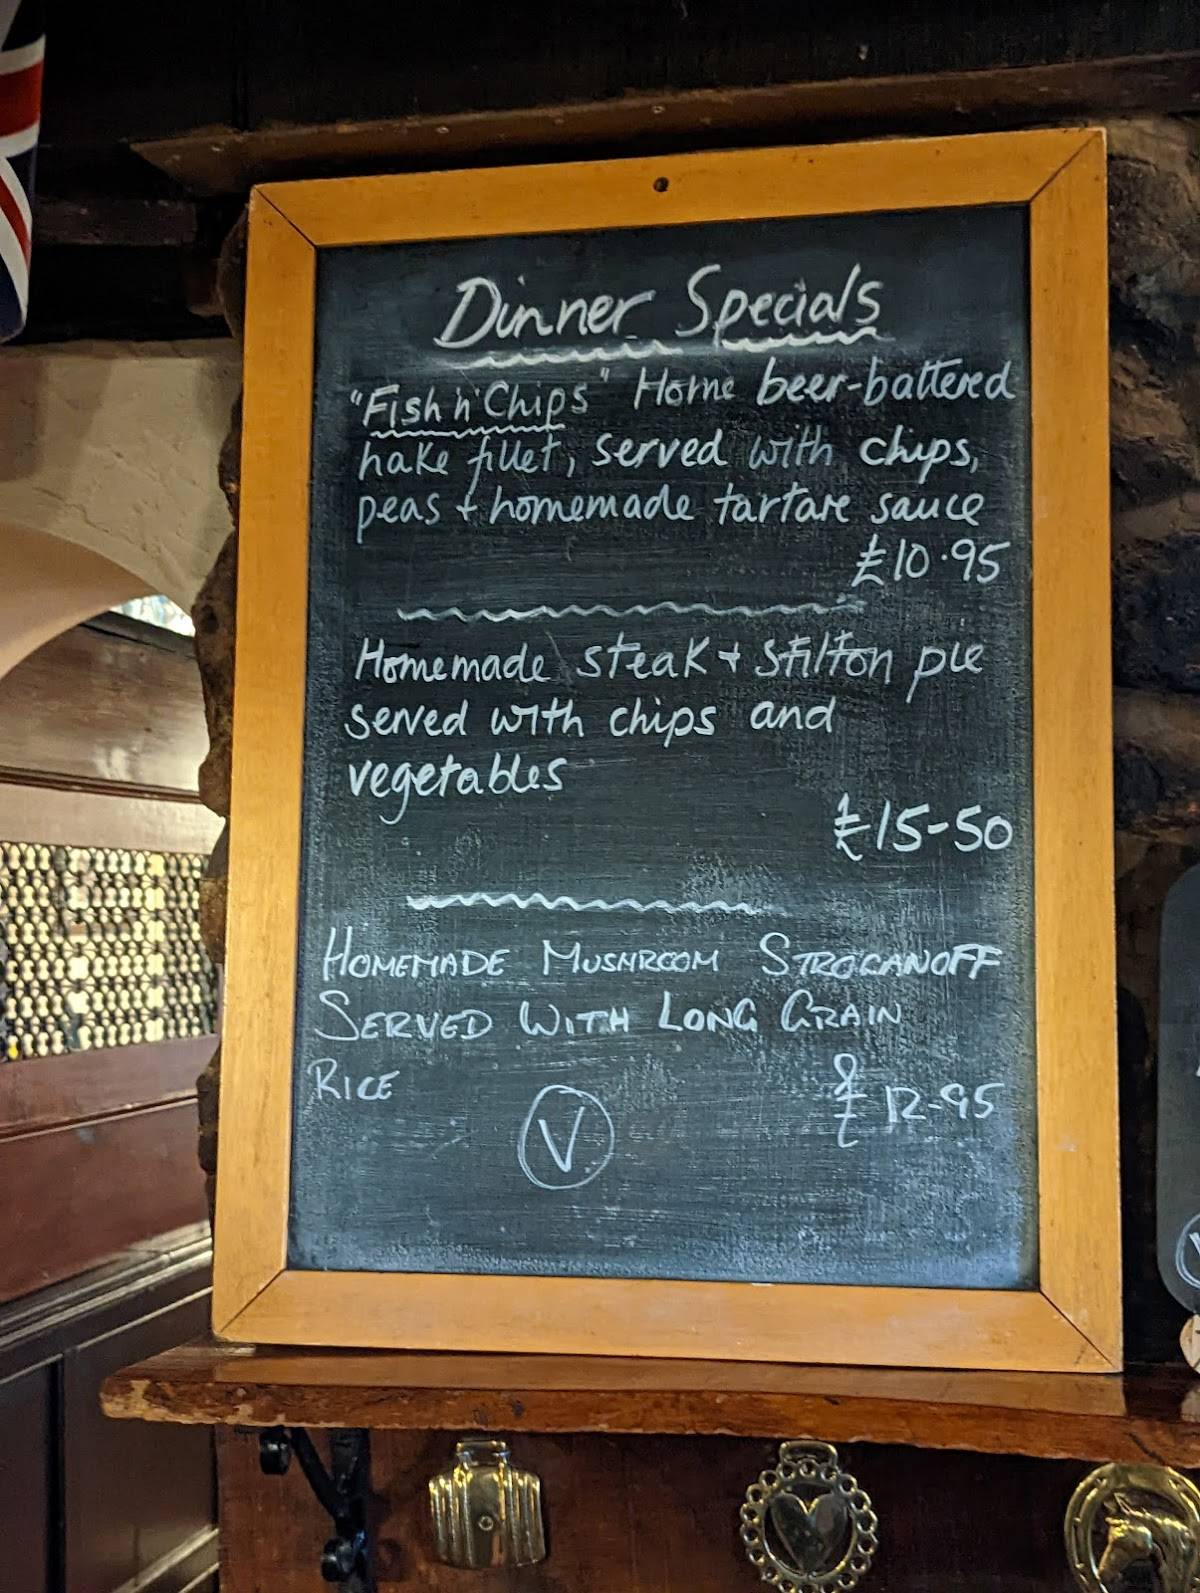 Dinner Specials
"Fish 'n' Chips" Home beer-battered
hake fillet, served with chips,
peas + homemade tartare sauce
£10.95
Homemade steak + stilton pie
served with chips and
vegetables
£15-50
HOMEMADE MUSHROOM STROGANOFF
SERVED WITH LONG GRAIN
RICE
£12-95
V